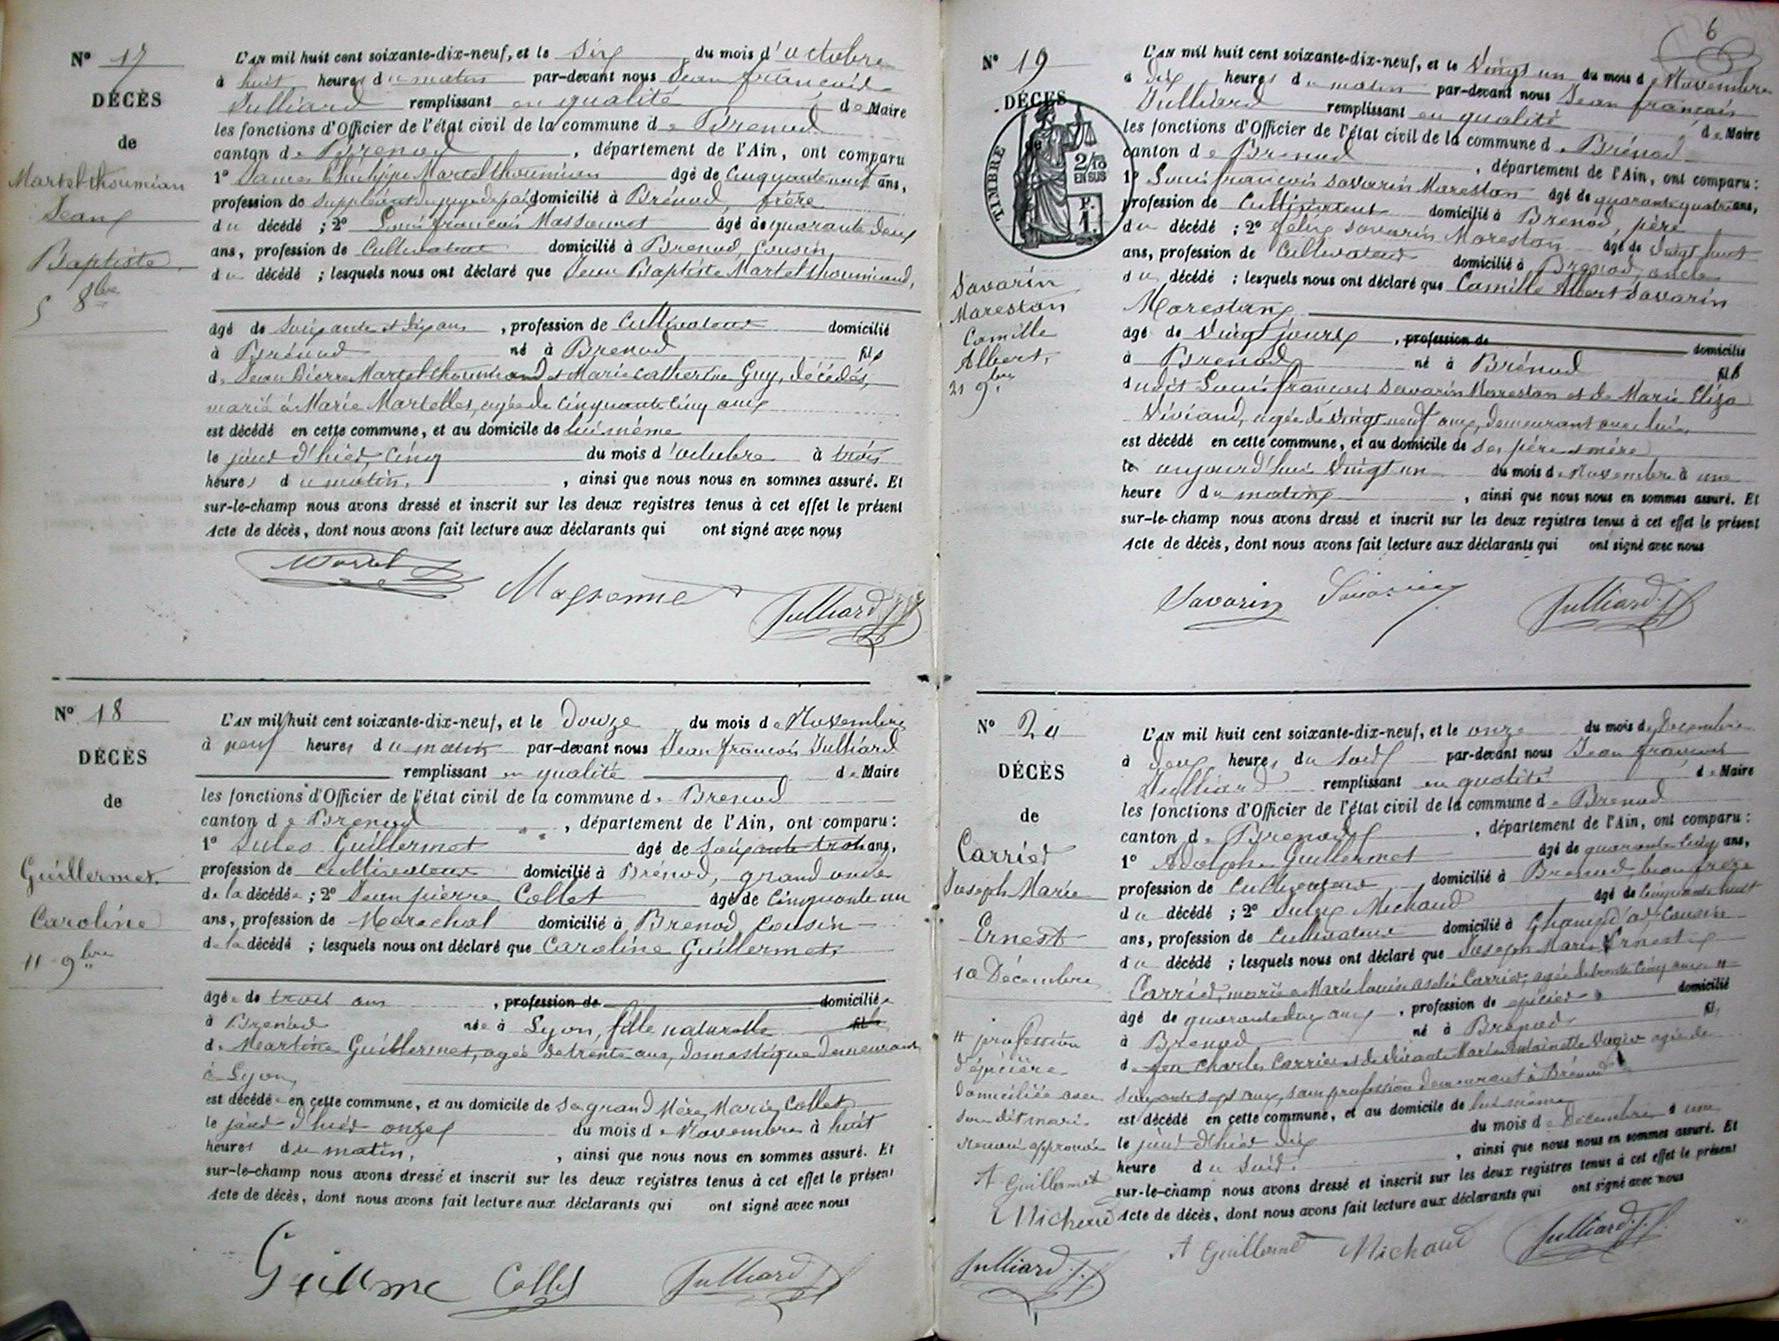 N° 17
DÉCÈS
de
Martel thoumian
Jean
Baptiste
5 8bre
L'AN mil huit cent soixante-dix-neuf, et le Six du mois d'octobre
à huit heures du matin par-devant nous Jean françois
Julliard remplissant en qualité de Maire
les fonctions d'Officier de l'état civil de la commune de Brénod
canton de Brénod, département de l'Ain, ont comparu
1° James Philippe Martel thoumian âgé de Cinquante neuf ans,
profession de Suppléant du juge de paix domicilié à Brénod, frère
du décédé ; 2° Louis françois Massonnet âgé de quarante deux
ans, profession de Cultivateur domicilié à Brenod, Cousin
du décédé ; lesquels nous ont déclaré que Jean Baptiste Martel thoumiand,
âgé de Soixante et dix ans, profession de Cultivateur domicilié
à Brénod né à Brenod fils
de Jean Pierre Martel thoumiand et Marie Catherine Guy, décédés,
marié à Marie Martelles, agée de Cinquante Cinq ans
est décédé en cette commune, et au domicile de lui même
le jour d'hier, Cinq du mois d'octobre à trois
heures du matin, ainsi que nous nous en sommes assuré. Et
sur-le-champ nous avons dressé et inscrit sur les deux registres tenus à cet effet le présent
Acte de décès, dont nous avons fait lecture aux déclarants qui ont signé avec nous
Martel Massonne Julliard J.f.
N° 18
DÉCÈS
de
Guillermet
Caroline
11 9bre
L'AN mil huit cent soixante-dix-neuf, et le Douze du mois de Novembre
à neuf heures du matin par-devant nous Jean françois Julliard
remplissant en qualité de Maire
les fonctions d'Officier de l'état civil de la commune de Brenod
canton de Brenod, département de l'Ain, ont comparu :
1° Jules Guillermet âgé de Soixante trois ans,
profession de Cultivateur domicilié à Brénod, grand oncle
de la décédée ; 2° Jean pierre Collet âgé de Cinquante un
ans, profession de Marechal domicilié à Brenod Cousin
de la décédé ; lesquels nous ont déclaré que Caroline Guillermet
âgée de trois ans, profession de domiciliée
à Brenod née à Lyon, fille naturelle fil
de Martine Guillermet, agée de trente ans, Domestique Demeurant
à Lyon,
est décédée en cette commune, et au domicile de Sa grand Mère Marie Collet
le jour d'hier onze du mois de Novembre à huit
heures du matin, ainsi que nous nous en sommes assuré. Et
sur-le-champ nous avons dressé et inscrit sur les deux registres tenus à cet effet le présent
Acte de décès, dont nous avons fait lecture aux déclarants qui ont signé avec nous
Guillme Collet Julliard J.f.
6
N° 19
DÉCÈS
TIMBRE
2/10
EN SUS
Savarin
Marestan
Camille
Albert,
21 9bre
L'AN mil huit cent soixante-dix-neuf, et le Vingt un du mois de Novembre
à dix heures du matin par-devant nous Jean françois
Julliard remplissant en qualité de Maire
les fonctions d'Officier de l'état civil de la commune de Brénod
canton de Brenod, département de l'Ain, ont comparu :
1° Louis françois Savarin Marestan âgé de quarante quatre ans,
profession de Cultivateur domicilié à Brenod, père
du décédé ; 2° félix Savarin Marestan âgé de Vingt huit
ans, profession de Cultivateur domicilié à Brenod, oncle
du décédé ; lesquels nous ont déclaré que Camille Albert Savarin
Marestan
âgé de Vingt jours, profession de domicilié
à Brenod né à Brénod fils
dudit Louis françois Savarin Marestan et de Marie Eliza
Viviand, agée de vingt neuf ans, demeurant avec lui,
est décédé en cette commune, et au domicile de Ses père et mère
le aujourd'hui Vingt un du mois de Novembre à une
heure du matin, ainsi que nous nous en sommes assuré. Et
sur-le-champ nous avons dressé et inscrit sur les deux registres tenus à cet effet le présent
Acte de décès, dont nous avons fait lecture aux déclarants qui ont signé avec nous
Savarin Savarin Julliard J.f.
N° 20
DÉCÈS
de
Carrier
Joseph Marie
Ernest
10 Décembre
# profession
d'épicière
Domiciliée avec
son dit mari.
renvoi approuvé
A Guillermet
Michaud
Julliard J.f.
L'AN mil huit cent soixante-dix-neuf, et le onze du mois de Décembre
à deux heures du Soir par-devant nous Jean françois
Julliard remplissant en qualité de Maire
les fonctions d'Officier de l'état civil de la commune de Brenod
canton de Brenod, département de l'Ain, ont comparu :
1° Adolphe Guillermet âgé de quarante Cinq ans,
profession de Cultivateur domicilié à Brenod beau frère
du décédé ; 2° Michaud âgé de Cinquante huit
ans, profession de Cultivateur domicilié à Champd'or Cousin
du décédé ; lesquels nous ont déclaré que Joseph Marie Ernest
Carrier, marié a Marie louise Carrier, agée de trente Cinq ans #
âgé de quarante deux ans, profession de épicier domicilié
à Brenod né à Brenod fils
de feu Charles Carrier et de vivante Marie Antoinette agée de
Soixante Sept ans, Sans profession demeurant à Brénod
est décédé en cette commune, et au domicile de lui même
le jour d'hier dix du mois de Décembre à une
heure du Soir, ainsi que nous nous en sommes assuré. Et
sur-le-champ nous avons dressé et inscrit sur les deux registres tenus à cet effet le présent
Acte de décès, dont nous avons fait lecture aux déclarants qui ont signé avec nous
A Guillermet Michaud Julliard J.f.